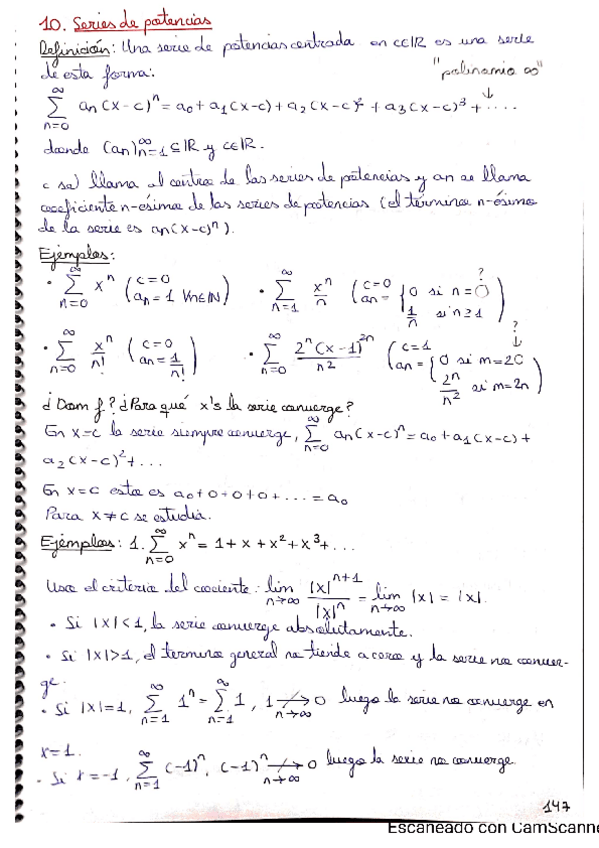 10. Series de potencias
Definición: Una serie de potencias centrada en c∈ℝ es una serie
de esta forma: "polinomio ∞"
∑_{n=0}^{∞} an(x-c)^n = a0 + a1(x-c) + a2(x-c)^2 + a3(x-c)^3 + ....
donde (an)_{n=1}^{∞} ⊆ ℝ y c∈ℝ.
c se) llama al centro de las series de potencias y an se llama
coeficiente n-ésimo de las series de potencias (el término n-ésimo
de la serie es an(x-c)^n).
Ejemplos:
• ∑_{n=0}^{∞} x^n (c=0, an=1 ∀n∈ℕ) • ∑_{n=1}^{∞} x^n/n (c=0, an= {0 si n=0 ?, 1/n si n≥1)
• ∑_{n=0}^{∞} x^n/n! (c=0, an=1/n!) • ∑_{n=0}^{∞} 2^n(x-1)^{2n}/n2 (c=1, an= {0 si m=20 ?, 2^n/n^2 si m=2n)
¿Dom f? ¿Para qué x's la serie converge?
En x=c la serie siempre converge, ∑_{n=0}^{∞} an(x-c)^n = a0 + a1(x-c) +
a2(x-c)^2 + ...
En x=c esto es a0+0+0+0+.... = a0
Para x≠c se estudia.
Ejemplos: 1. ∑_{n=0}^{∞} x^n = 1 + x + x^2 + x^3 + ...
Uso el criterio del cociente: lim_{n→∞} |x|^{n+1}/|x|^n = lim_{n→∞} |x| = |x|.
• Si |x|<1, la serie converge absolutamente.
• Si |x|>1, el termino general no tiende a cero y la serie no conver-
ge.
• Si |x|=1, ∑_{n=1}^{∞} 1^n = ∑_{n=1}^{∞} 1, 1 ↛_{n→∞} 0 luego la serie no converge en
x=1.
• Si x=-1, ∑_{n=1}^{∞} (-1)^n, (-1)^n ↛_{n→∞} 0 luego la serie no converge.
147
Escaneado con CamScanne